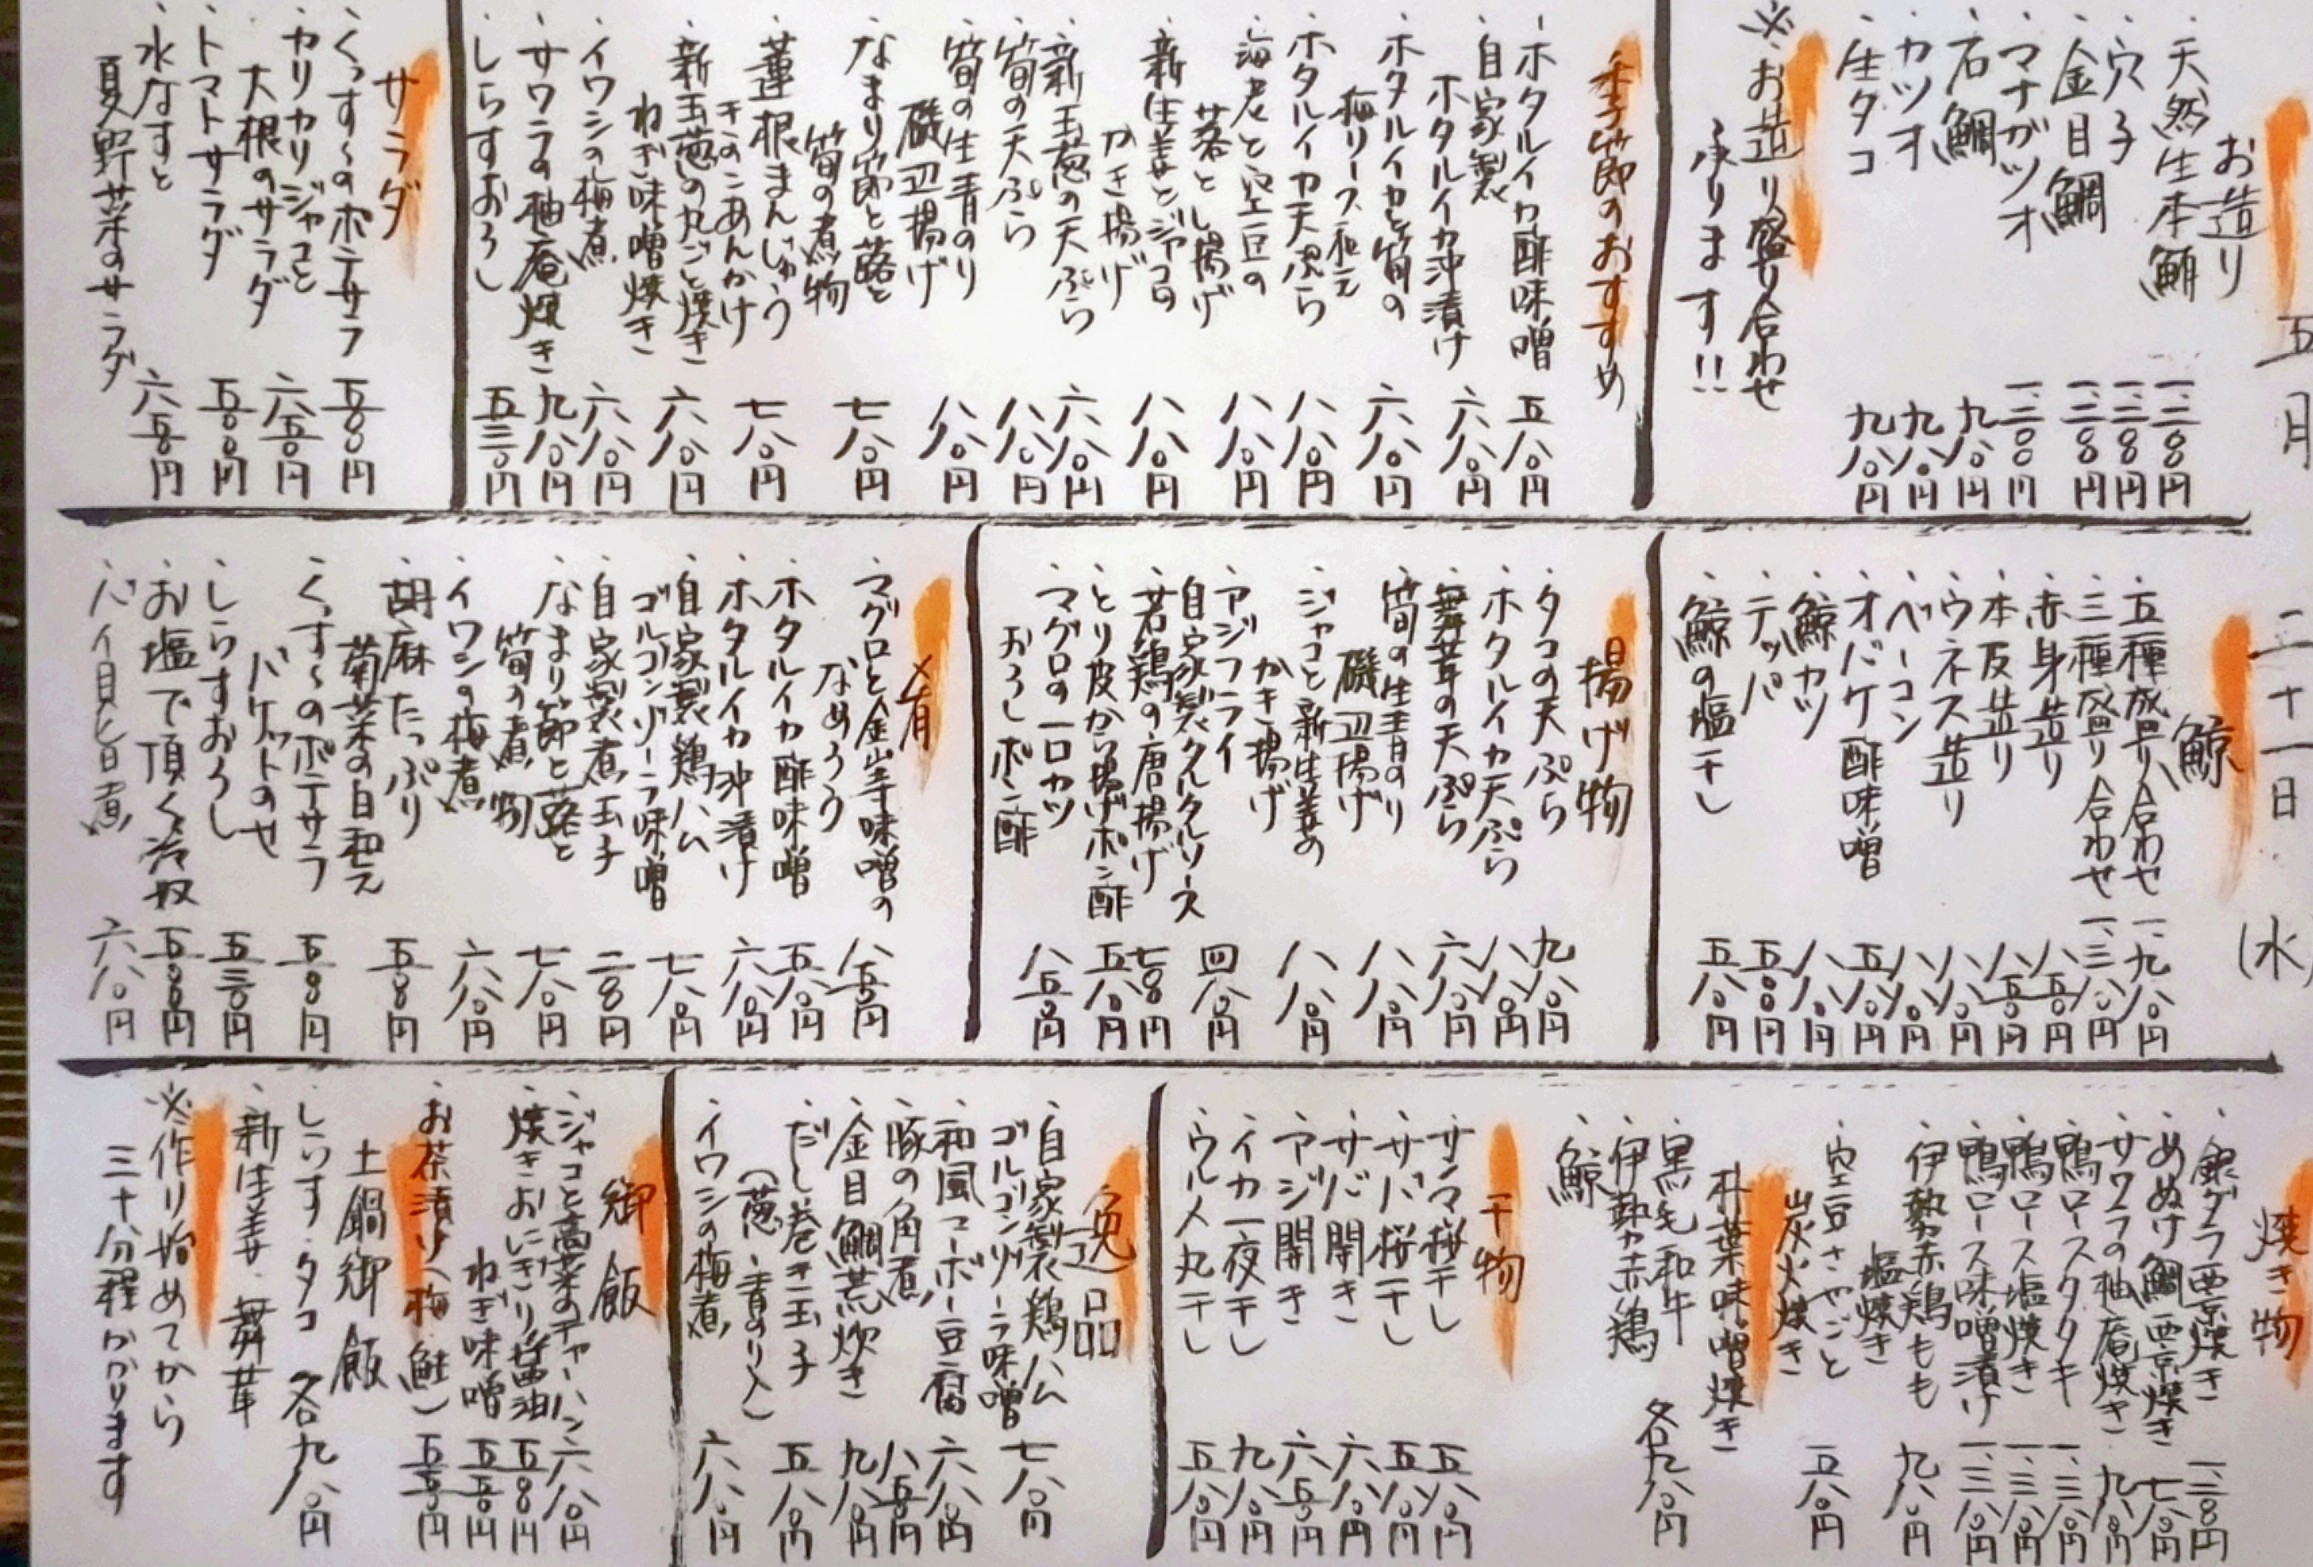 五月二十一日(水)
お造り
・天然生本鮪 一、二八〇円
・穴子 一、二八〇円
・金目鯛 一、二八〇円
・マナガツオ 一、二〇〇円
・石鯛 九八〇円
・カツオ 九八〇円
・生タコ 九八〇円
※お造り盛り合わせ
承ります!!
季節のおすすめ
・ホタルイカ酢味噌 五八〇円
・自家製
ホタルイカ沖漬け 六八〇円
・ホタルイカと筍の
梅リース和え 六八〇円
・ホタルイカ天ぷら 八八〇円
・海老と空豆の
落とし揚げ 八八〇円
・新生姜とジャコの
かき揚げ 八八〇円
・新玉葱の天ぷら 六八〇円
・筍の天ぷら 八八〇円
・筍の生青のり
磯辺揚げ 八八〇円
・なまり節と蕗と
筍の煮物 七八〇円
・蓮根まんじゅう
きのこあんかけ 七八〇円
・新玉葱の丸ごと焼き
ねぎ味噌焼き 六八〇円
・イワシの梅煮 六八〇円
・サワラの柚庵焼き 九八〇円
・しらすおろし 五三〇円
サラダ
・くっす〜のポテサラ 五〇〇円
・カリカリジャコと
大根のサラダ 六五〇円
・トマトサラダ 五〇〇円
・水なすと
夏野菜のサラダ 六五〇円
鯨
・五種盛り合わせ 一、九八〇円
・三種盛り合わせ 一、三八〇円
・赤身造り 八五〇円
・本皮造り 八五〇円
・ウネス造り 八八〇円
・ベーコン 八八〇円
・オバケ酢味噌 五八〇円
・鯨カツ 八八〇円
・テッパ 五〇〇円
・鯨の塩干し 五八〇円
揚げ物
・タコの天ぷら 九八〇円
・ホタルイカ天ぷら 八八〇円
・舞茸の天ぷら 六八〇円
・筍の生青のり
磯辺揚げ 八八〇円
・ジャコと新生姜の
かき揚げ 八八〇円
・アジフライ
自家製タルタルソース 四八〇円
・若鶏の唐揚げ 七八〇円
・とり皮から揚げポン酢 五八〇円
・マグロの一口カツ
おろしポン酢 八五〇円
肴
・マグロと金山寺味噌の
なめろう 八五〇円
・ホタルイカ酢味噌 五八〇円
・ホタルイカ沖漬け 六八〇円
・自家製鶏ハム
ゴルゴンゾーラ味噌 七八〇円
・自家製煮玉子 二八〇円
・なまり節と蕗と
筍の煮物 七八〇円
・イワシの梅煮 六八〇円
・胡麻たっぷり
菊菜の白和え 五八〇円
・くっす〜のポテサラ
バケットのせ 五八〇円
・しらすおろし 五三〇円
・お塩で頂く冷奴 五〇〇円
・バイ貝旨煮 六八〇円
焼き物
・銀ダラ西京焼き 一、二八〇円
・めぬけ鯛西京焼き 七八〇円
・サワラの柚庵焼き 九八〇円
・鴨ロースタタキ 一、三八〇円
・鴨ロース塩焼き 一、三八〇円
・鴨ロース味噌漬け 一、三八〇円
・伊勢赤鶏もも
塩焼き 九八〇円
・空豆さやごと
炭火焼き 五八〇円
朴葉味噌焼き
・黒毛和牛
・伊勢赤鶏 各九八〇円
・鯨
干物
・サンマ桜干し 五八〇円
・サバ桜干し 五八〇円
・サバ開き 六八〇円
・アジ開き 六五〇円
・イカ一夜干し 九八〇円
・ウルメ丸干し 五八〇円
逸品
・自家製鶏ハム
ゴルゴンゾーラ味噌 七八〇円
・和風マーボー豆腐 六八〇円
・豚の角煮 八五〇円
・金目鯛荒炊き 九八〇円
・だし巻き玉子
(葱・青のり入) 五八〇円
・イワシの梅煮 六八〇円
御飯
・ジャコと高菜のチャーハン 六八〇円
・焼きおにぎり醤油 五五〇円
ねぎ味噌 五五〇円
・お茶漬け(梅・鮭) 五五〇円
土鍋御飯
・しらす・タコ 各九八〇円
・新生姜・舞茸
※作り始めてから
三十分程かかります